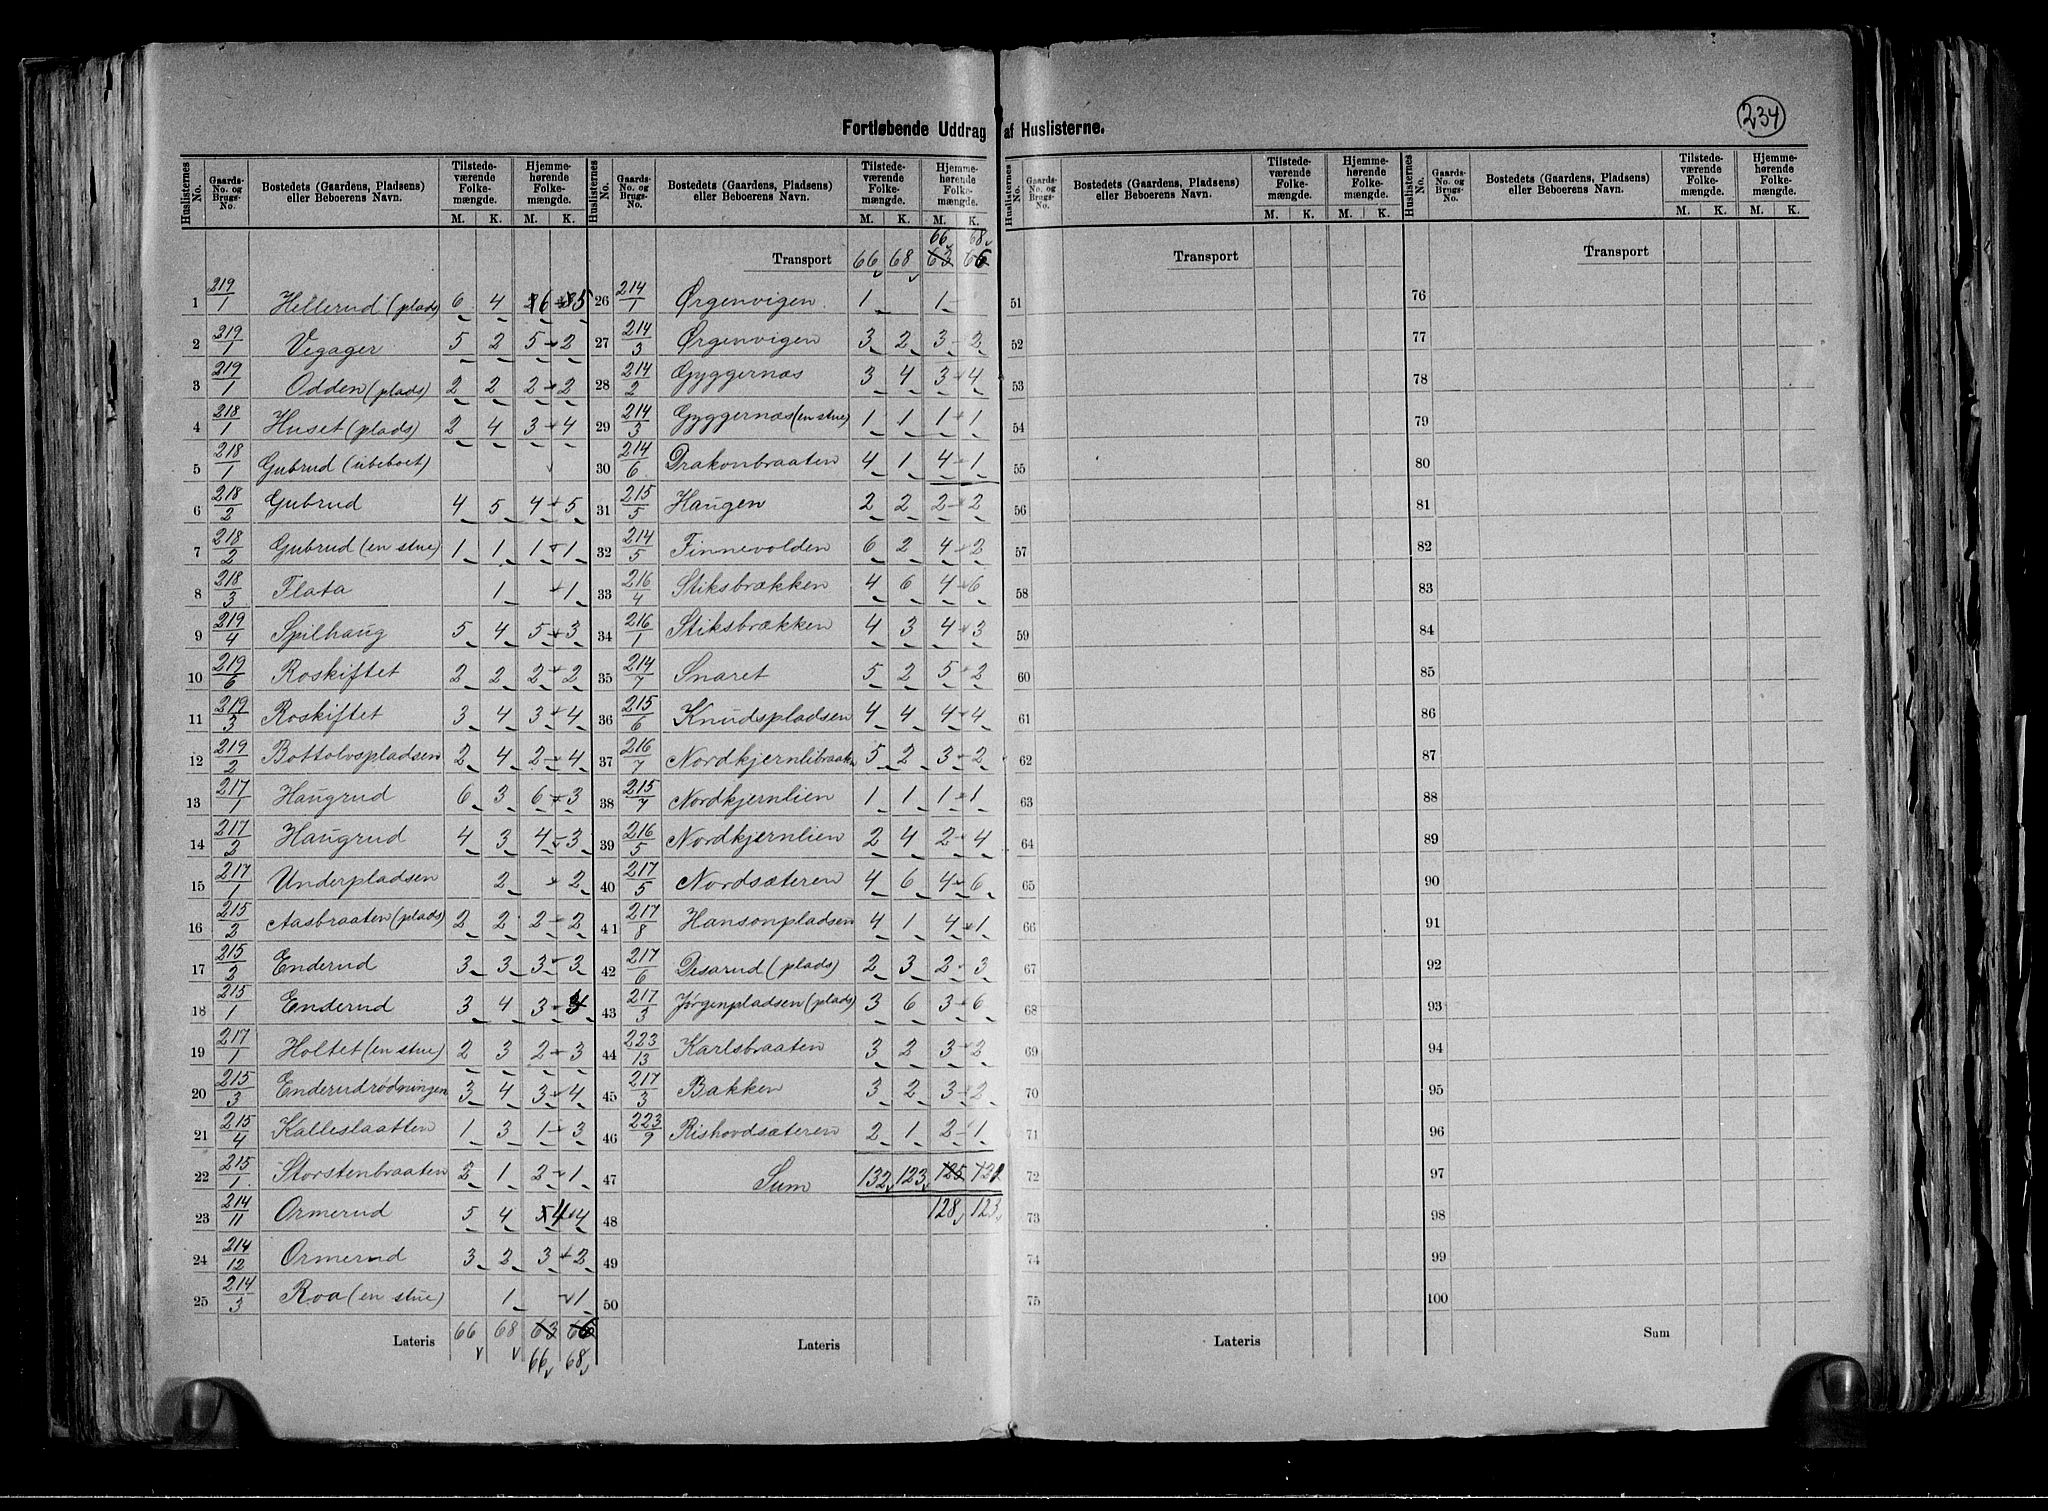 234
Fortløbende Uddrag af Huslisternes.
Huslisternes No. Gaards-No. og Brugs-No. Bostedets (Gaardens, Pladsens) eller Beboerens Navn. Tilstedeværende Folkemængde. Hjemmehørende Folkemængde.
M. K. M. K.
1 219/1 Hellerud (plads) 6 4 6 5
2 219/1 Vegager 5 2 5 2
3 219/1 Odden (plads) 2 2 2 2
4 218/1 Huset (plads) 2 4 3 4
5 218/1 Gubrud (ubeboet)
6 218/2 Gubrud 4 5 4 5
7 218/2 Gubrud (en stue) 1 1 1 1
8 218/3 Flata 1 1
9 219/4 Spilhaug 5 4 5 3
10 219/6 Roskiftet 2 2 2 2
11 219/3 Roskiftet 3 4 3 4
12 219/2 Bottolvspladsen 2 4 2 4
13 217/1 Haugrud 6 3 6 3
14 217/2 Haugrud 4 3 4 3
15 217/1 Underpladsen 2 2
16 215/2 Aasbraaten (plads) 2 2 2 2
17 215/2 Enderud 3 3 3 3
18 215/1 Enderud 3 4 3 4
19 217/1 Holtet (en stue) 2 3 2 3
20 215/3 Enderudrödningen 3 4 3 4
21 215/4 Kalleslaatten 1 3 1 3
22 215/1 Storstenbraaten 2 1 2 1
23 214/11 Ormerud 5 4 4 4
24 214/12 Ormerud 3 2 3 2
25 214/3 Roa (en stue) 1 1
Lateris 66 68 63 66
66 68
Huslisternes No. Gaards-No. og Brugs-No. Bostedets (Gaardens, Pladsens) eller Beboerens Navn. Tilstedeværende Folkemængde. Hjemmehørende Folkemængde.
M. K. M. K.
66 68
Transport 66 68 63 66
26 214/1 Ørgenvigen 1 1
27 214/3 Ørgenvigen 3 2 3 2
28 214/2 Gyggernæs 3 4 3 4
29 214/3 Gyggernæs (en stue) 1 1 1 1
30 214/6 Drakonbraaten 4 1 4 1
31 215/5 Haugen 2 2 2 2
32 214/5 Finnevolden 6 2 4 2
33 216/4 Stiksbrækken 4 6 4 6
34 216/1 Stiksbrækken 4 3 4 3
35 214/7 Snaret 5 2 5 2
36 215/6 Knudspladsen 4 4 4 4
37 216/7 Nordkjernlibraaten 5 2 3 2
38 215/7 Nordkjernlien 1 1 1 1
39 216/5 Nordkjernlien 2 4 2 4
40 217/5 Nordsæteren 4 6 4 6
41 217/8 Hansonpladsen 4 1 4 1
42 217/6 Desarud (plads) 2 3 2 3
43 217/3 Jørgenpladsen (plads) 3 6 3 6
44 223/13 Karlsbraaten 3 2 3 2
45 217/3 Bakken 3 2 3 2
46 223/9 Rishovdsæteren 2 1 2 1
47 Sum 132 123 125 121
48 128 123
49
50
Lateris
Huslisternes No. Gaards-No. og Brugs-No. Bostedets (Gaardens, Pladsens) eller Beboerens Navn. Tilstedeværende Folkemængde. Hjemmehørende Folkemængde.
M. K. M. K.
Transport
51
52
53
54
55
56
57
58
59
60
61
62
63
64
65
66
67
68
69
70
71
72
73
74
75
Lateris
Huslisternes No. Gaards-No. og Brugs-No. Bostedets (Gaardens, Pladsens) eller Beboerens Navn. Tilstedeværende Folkemængde. Hjemmehørende Folkemængde.
M. K. M. K.
Transport
76
77
78
79
80
81
82
83
84
85
86
87
88
89
90
91
92
93
94
95
96
97
98
99
100
Sum